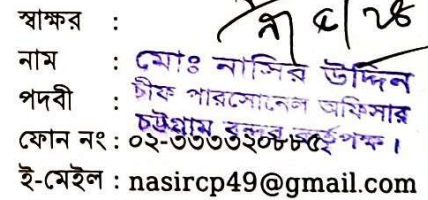 স্বাক্ষর :
নাম : মোঃ নাসির উদ্দিন
পদবী : চীফ পারসোনেল অফিসার
চট্টগ্রাম বন্দর কর্তৃপক্ষ।
ফোন নং : ০২-৩৩৩৩২০৮৮৫২
ই-মেইল : nasircp49@gmail.com